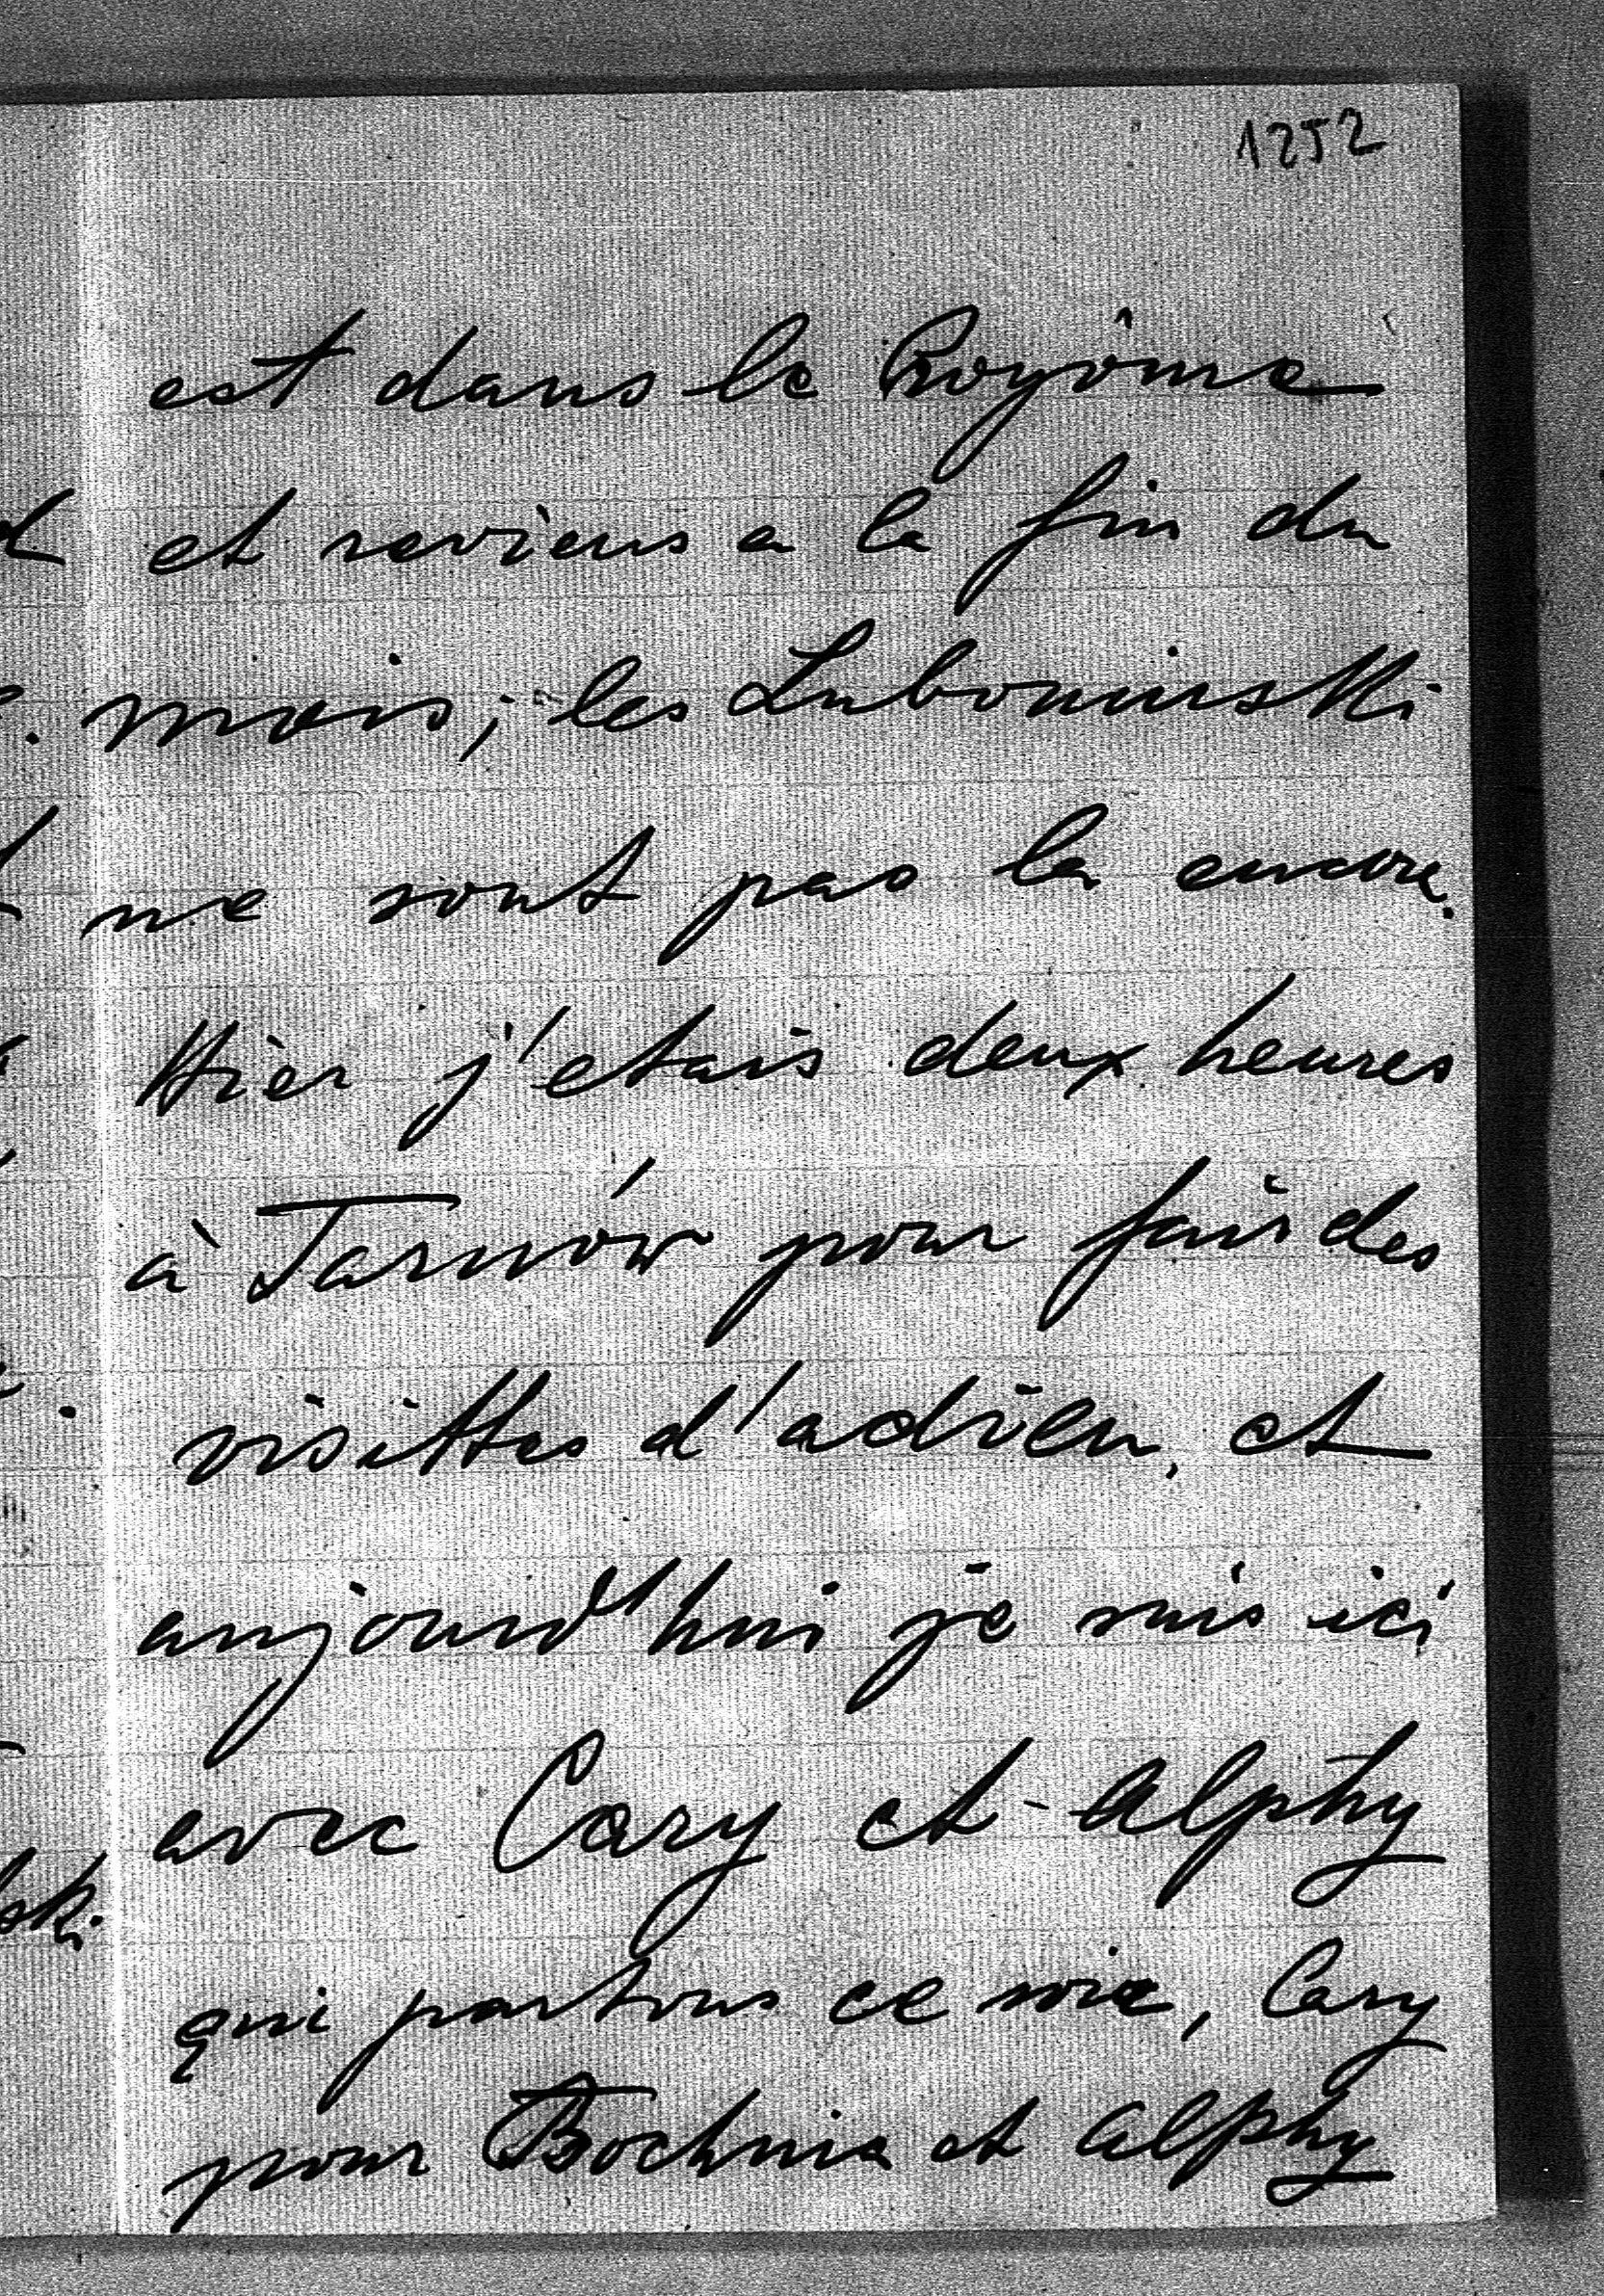 1252
est dans le Royôme
et reviens a la fin du
mois; les Lubomirski
ne sont pas la encore.
Hier j'etais deux heures
à Tarnów pour fair des
visittes d'adieu, et
aujourd'hui je suis ici
avec Cary et Alphy
qui partons ce soir, Cary
pour Bochnia et Alphy